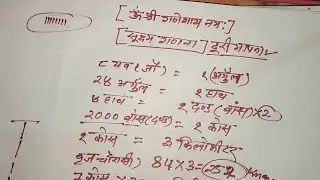 [ॐ श्री गणेशाय नमः]
[सूक्ष्म गणना] दूरी मापन
८ यव (जौ) = १ (अंगुल)
२४ अंगुल = १ हाथ
४ हाथ = १ दण्ड (बांस) × २
2000 बांस (दण्ड) = १ कोस
१ कोस = ३ किलोमीटर
84 × 3 = 252